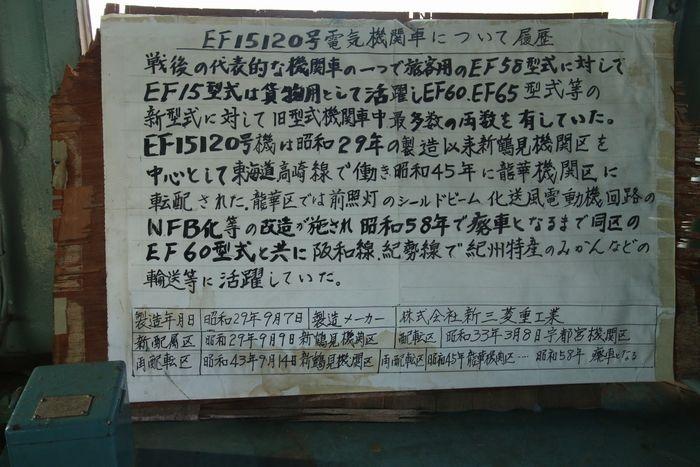 EF15120号電気機関車について履歴
戦後の代表的な機関車の一つで旅客用のEF58型式に対して
EF15型式は貨物用として活躍しEF60.EF65型式等の
新型式に対して旧型式機関車中最多数の両数を有していた。
EF15120号機は昭和29年の製造以来新鶴見機関区を
中心として東海道高崎線で働き昭和45年に竜華機関区に
転配された.竜華区では前照灯のシールドビーム化送風電動機回路の
NFB化等の改造が施され昭和58年で廃車となるまで同区の
EF60型式と共に阪和線.紀勢線で紀州特産のみかんなどの
輸送等に活躍していた。
製造年月日 昭和29年9月7日 製造メーカー 株式会社新三菱重工業
新配属区 昭和29年9月9日新鶴見機関区 配転区 昭和33年3月8日宇都宮機関区
再配転区 昭和43年9月14日新鶴見機関区 再配転区 昭和45年竜華機関区…昭和58年 廃車となる